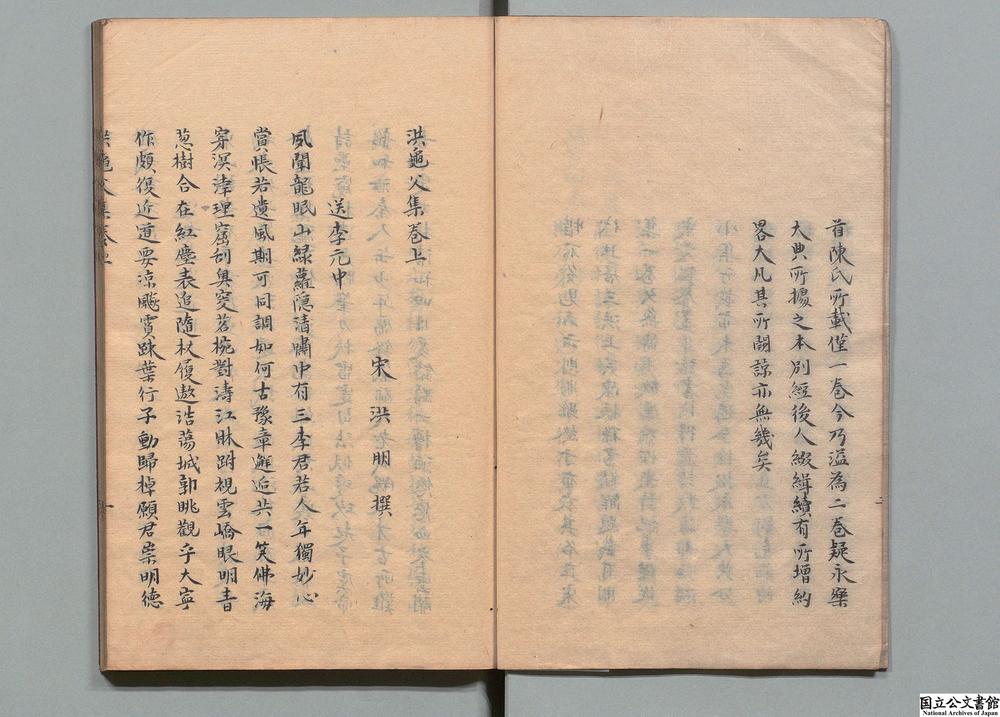 首陳氏所載僅一卷今乃溢為二卷疑永樂
大典所據之本別經後人綴緝續有所增約
畧大凡其所闕諒亦無幾矣
洪龜父集卷上
宋 洪朋 撰
送李元中
夙聞龍眠山綠蘿隱清嘯中有三李君若人年獨妙心
賞悵若遺風期可同調如何古豫章邂逅共一笑佛海
穿溟津理窟刮奧窔茗椀對濤江牀跗視雲嶠眼明青
葱樹合在紅塵表追隨杖履遨浩蕩城郭眺觀乎大寧
作頗復近道要涼飈賈踈葉行子動歸棹願君崇明德
洪龜父集卷上
一
国立公文書館
National Archives of Japan